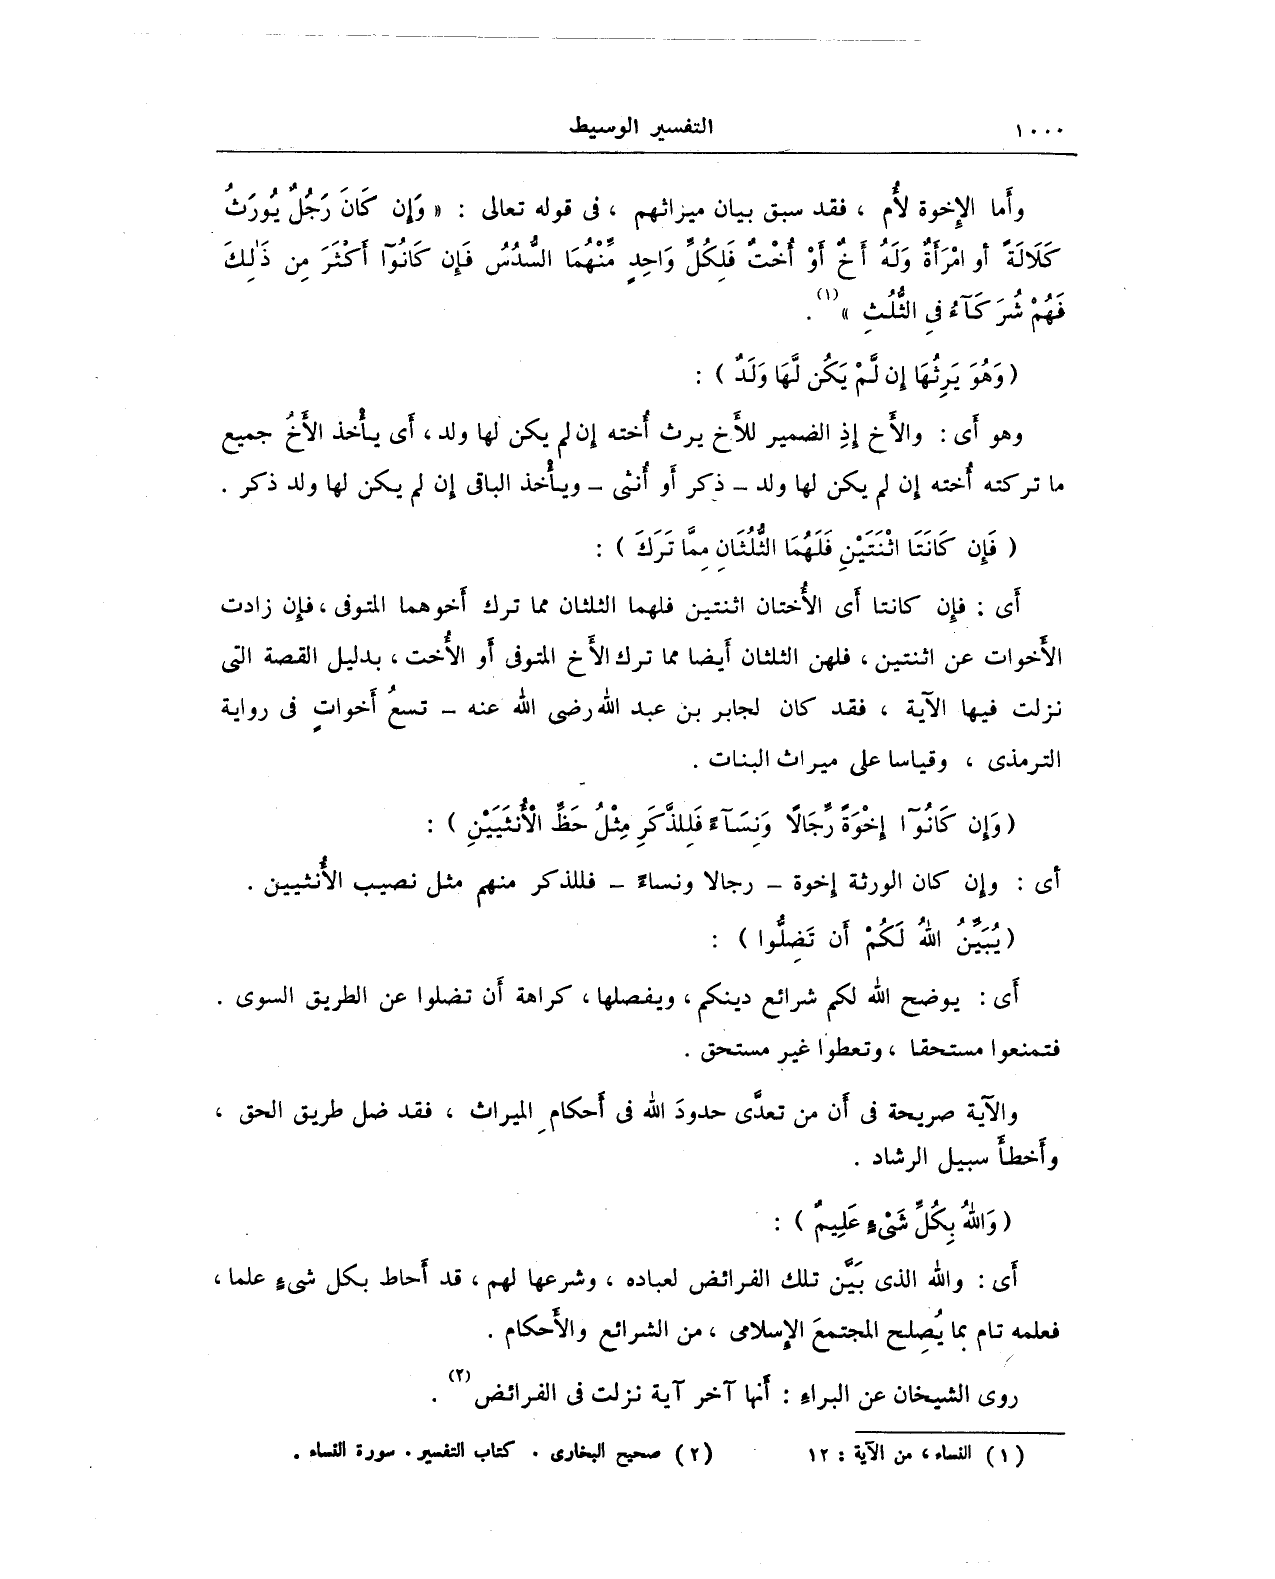 ١٠٠٠ التفسير الوسيط
وأَما الإِخوة لأُم ، فقد سبق بيان ميراثهم ، فى قوله تعالى : « وَإِن كَانَ رَجُلٌ يُورَثُ
كَلَالَةً أو امْرَأَةٌ وَلَهُ أَخٌ أَوْ أُخْتٌ فَلِكُلِّ وَاحِدٍ مِّنْهُمَا السُّدُسُ فَإِن كَانُوٓا أَكْثَرَ مِن ذَٰلِكَ
فَهُمْ شُرَكَآءُ فِى الثُّلُثِ »(١) .
( وَهُوَ يَرِثُهَا إِن لَّمْ يَكُن لَّهَا وَلَدٌ ) :
وهو أَى : والأَخ إِذِ الضمير للأَخ يرث أُخته إِن لم يكن لها ولد ، أَى يأْخذ الأَخُ جميع
ما تركته أُخته إِن لم يكن لها ولد – ذكر أَو أُنثى – ويأْخذ الباقى إِن لم يكن لها ولد ذكر .
( فَإِن كَانَتَا اثْنَتَيْنِ فَلَهُمَا الثُّلُثَانِ مِمَّا تَرَكَ ) :
أَى : فإِن كانتا أَى الأُختان اثنتين فلهما الثلثان مما ترك أَخوهما المتوفى ، فإِن زادت
الأَخوات عن اثنتين ، فلهن الثلثان أَيضا مما ترك الأَخ المتوفى أَو الأُخت ، بدليل القصة التى
نزلت فيها الآية ، فقد كان لجابر بن عبد الله رضى الله عنه – تسعُ أَخواتٍ فى رواية
الترمذى ، وقياسا على ميراث البنات .
( وَإِن كَانُوٓا إِخْوَةً رِّجَالًا وَنِسَآءً فَلِلذَّكَرِ مِثْلُ حَظِّ الْأُنثَيَيْنِ ) :
أى : وإِن كان الورثة إِخوة – رجالا ونساءً – فللذكر منهم مثل نصيب الأُنثيين .
( يُبَيِّنُ اللهُ لَكُمْ أَن تَضِلُّوا ) :
أَى : يوضح الله لكم شرائع دينكم ، ويفصلها ، كراهة أَن تضلوا عن الطريق السوى .
فتمنعوا مستحقا ، وتعطوا غير مستحق .
والآية صريحة فى أَن من تعدَّى حدودَ الله فى أَحكام الميراث ، فقد ضل طريق الحق ،
وأَخطأَ سبيل الرشاد .
( وَاللهُ بِكُلِّ شَىْءٍ عَلِيمٌ ) :
أَى : والله الذى بَيَّن تلك الفرائض لعباده ، وشرعها لهم ، قد أَحاط بكل شىءٍ علما ،
فعلمه تام بما يُصلِح المجتمعَ الإِسلامى ، من الشرائع والأَحكام .
روى الشيخان عن البراءِ : أَنها آخر آية نزلت فى الفرائض(٢) .
(١) النساء ، من الآية : ١٢ (٢) صحيح البخارى . كتاب التفسير . سورة النساء .